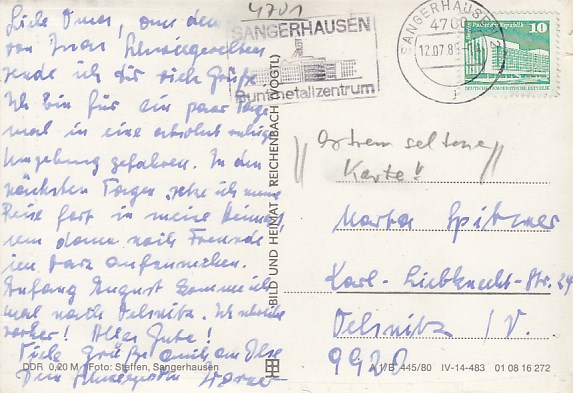 4701
SANGERHAUSEN
Buntmetallzentrum
SANGERHAUSEN 2
4700
12.07.8
DEUTSCHE DEMOKRATISCHE REPUBLIK
10
Liebe Oma, aus dem
von
sende ich dir viele Grüße.
Ich bin für ein paar Tage
mal in eine absolut ruhige
Umgebung gefahren. In den
nächsten Tagen setze ich meine
Reise fort in meine
um dann noch Freunde
im Harz aufzusuchen.
Anfang August komme ich
mal nach Oelsnitz. Ich
vorher! Alles Gute!
Viele Grüße auch an Ilse
Dein Werner
BILD UND HEIMAT REICHENBACH (VOGTL)
extrem seltene
Karte!!
Marta Spitzner
Karl-Liebknecht-Str. 24
Oelsnitz /V.
9920
DDR 0,20 M Foto: Steffen, Sangerhausen
A 1/B 445/80 IV-14-483 01 08 16 272